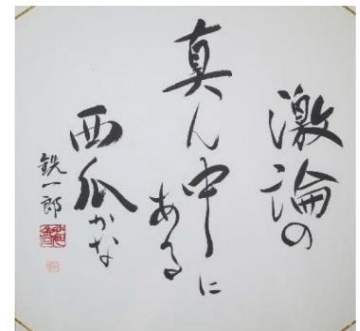 激論の
真ん中に
ある
西瓜かな